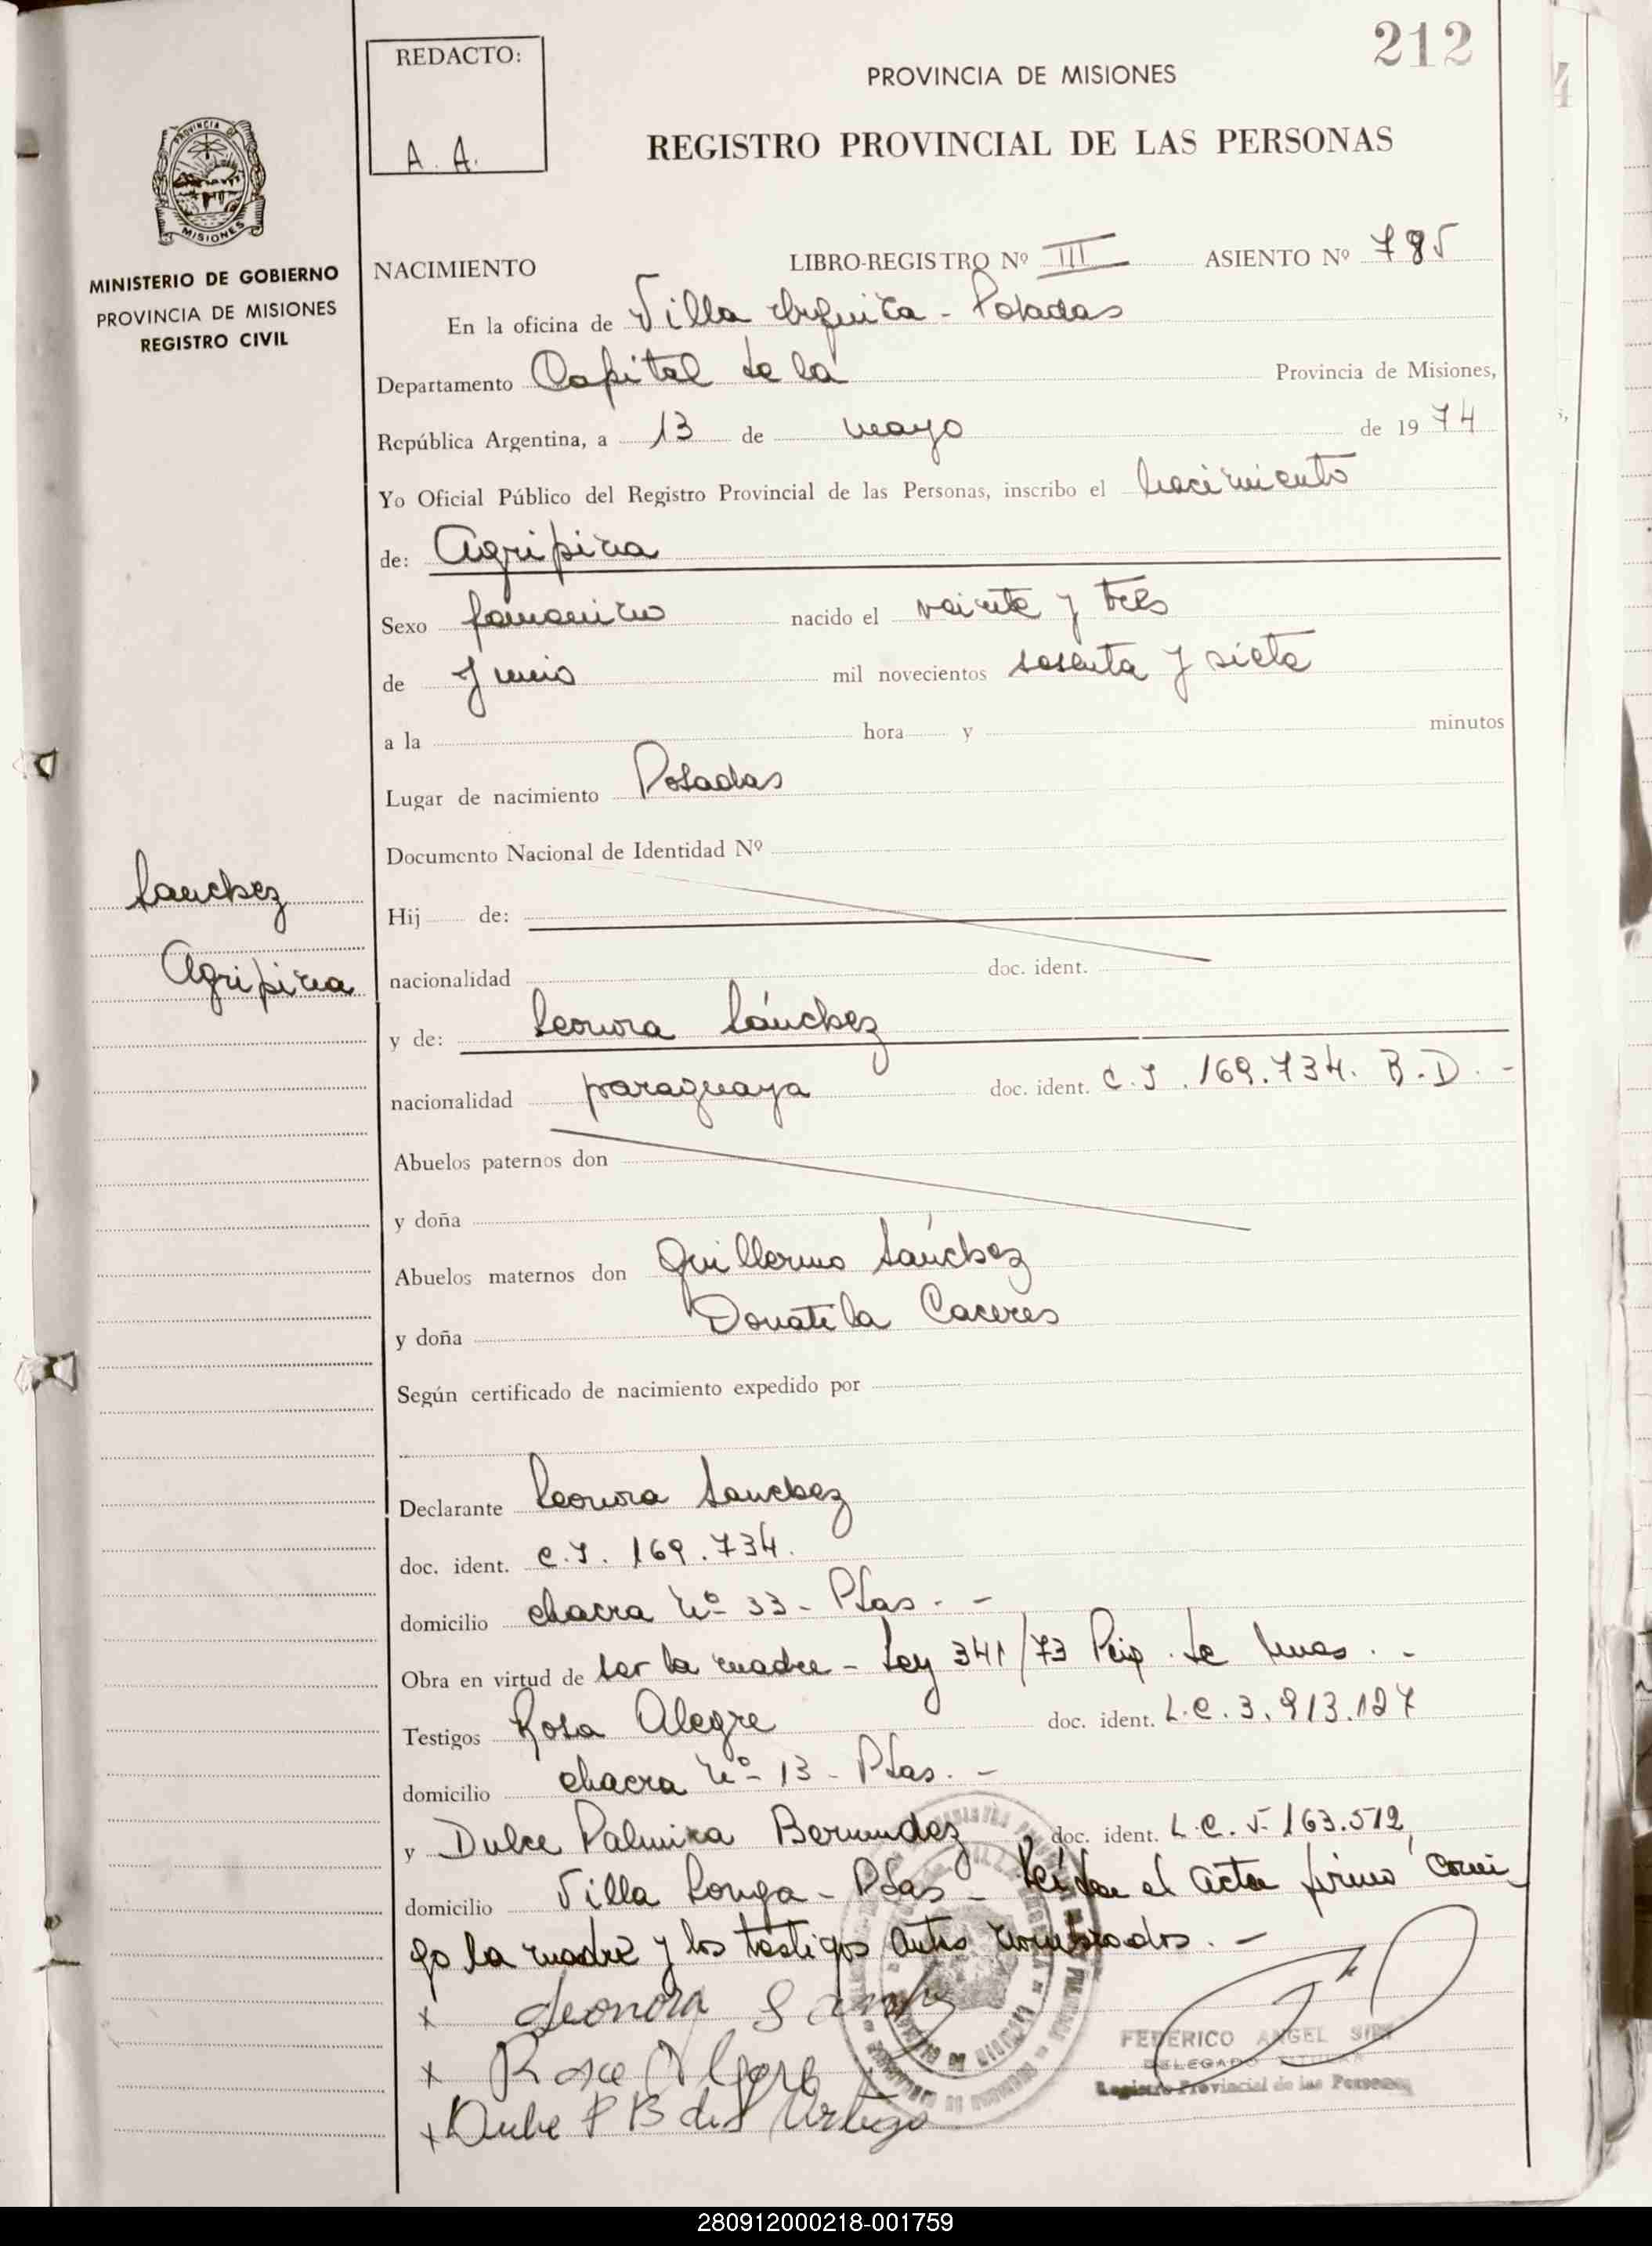 212
REDACTO:
A. A.
PROVINCIA DE MISIONES
REGISTRO PROVINCIAL DE LAS PERSONAS
PROVINCIA DE
MISIONES
MINISTERIO DE GOBIERNO
PROVINCIA DE MISIONES
REGISTRO CIVIL
NACIMIENTO LIBRO-REGISTRO Nº III ASIENTO Nº 785
En la oficina de Villa Urquiza - Posadas
Departamento Capital de la Provincia de Misiones,
República Argentina, a 13 de mayo de 1974
Yo Oficial Público del Registro Provincial de las Personas, inscribo el nacimiento
de: Agripina
Sexo femenino nacido el veinte y tres
de Junio mil novecientos sesenta y siete
a la hora y minutos
Lugar de nacimiento Posadas
Documento Nacional de Identidad Nº
Sanchez
Agripina
Hij de:
nacionalidad doc. ident.
y de: Leonora Sánchez
nacionalidad paraguaya doc. ident. C.I. 169.734. B.D. -
Abuelos paternos don
y doña
Abuelos maternos don Guillermo Sánchez
y doña Donatila Caceres
Según certificado de nacimiento expedido por
Declarante Leonora Sanchez
doc. ident. C.I. 169.734.
domicilio chacra Nº 33 - Pdas. -
Obra en virtud de ser la madre - Ley 341/73 de -
Testigos Rosa Alegre doc. ident. L.C. 3.913.127
domicilio chacra Nº 13 - Pdas. -
y Dulce Palmira Bermudez doc. ident. L.C. 5.163.512
domicilio Villa Longa - Pdas - Leída el acta firma conmi
go la madre y los testigos antes nombrados. -
x Leonora Sanchez
x Rosa Alegre
x Dulce P B de
FEDERICO ANGEL
DELEGADO TITULAR
Registro Provincial de las Personas
280912000218-001759